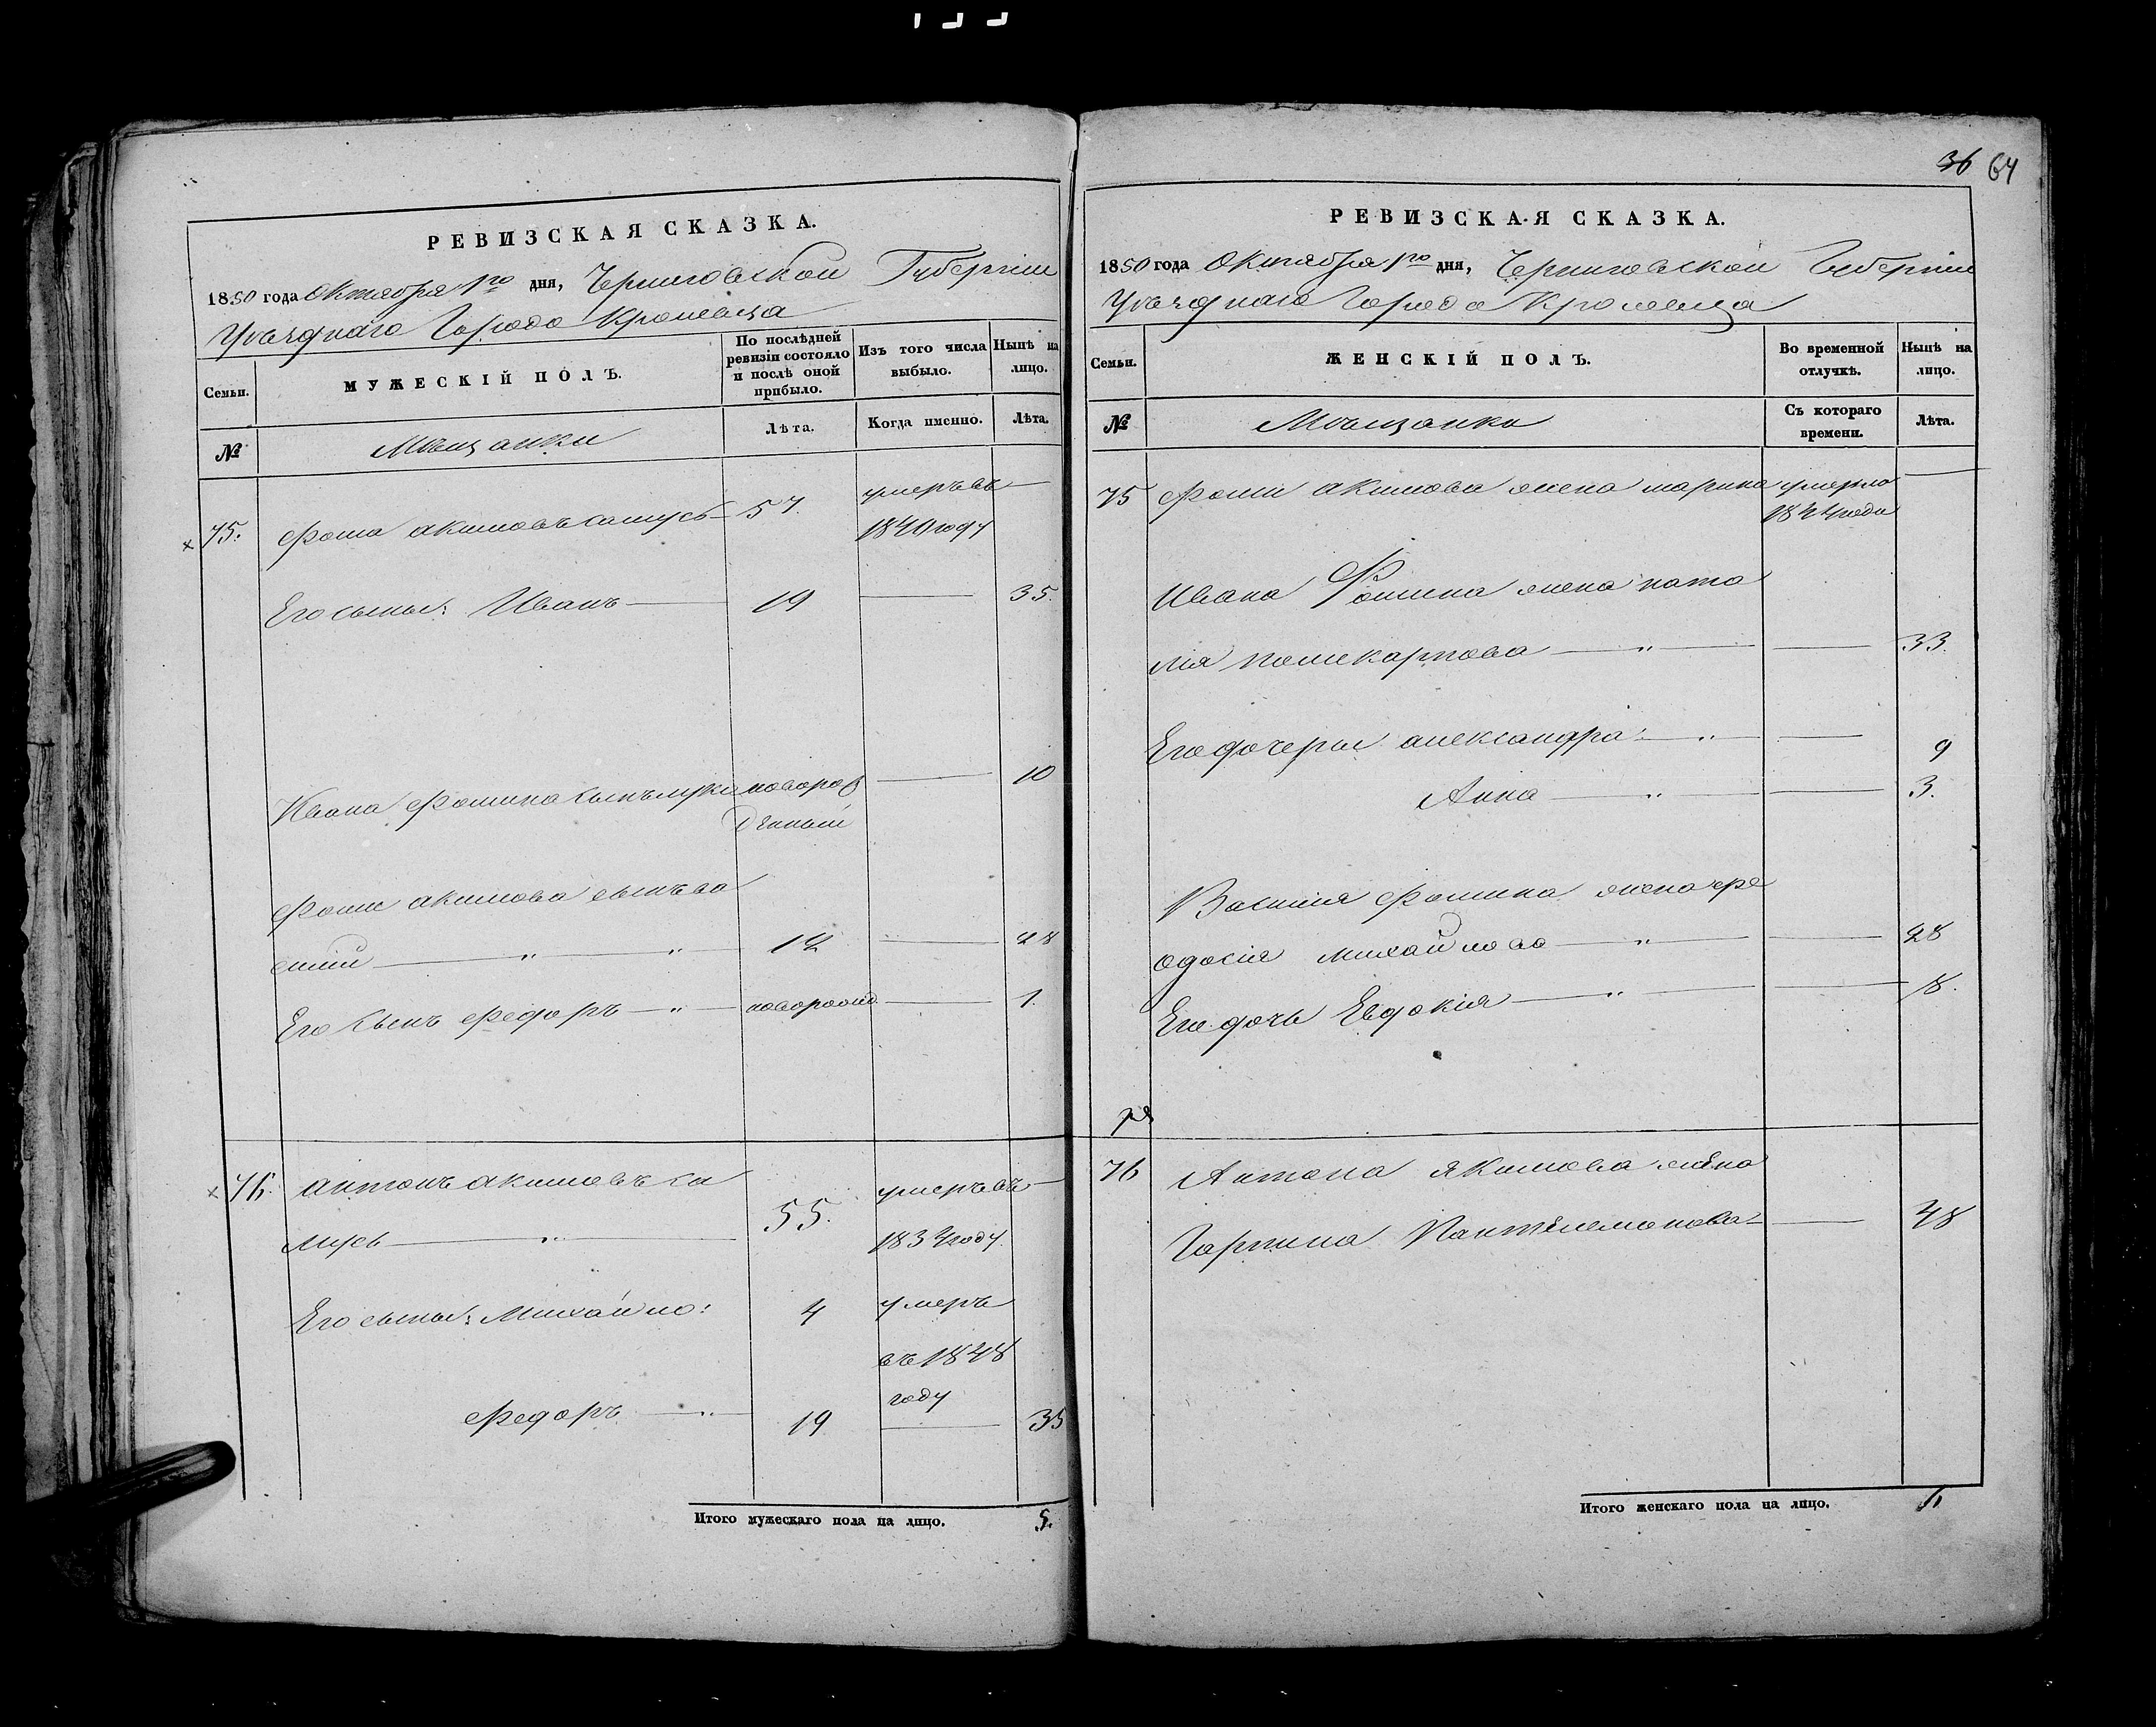 36 64
РЕВИЗСКАЯ СКАЗКА.
1850 года Октября 1го дня, Черниговской Губернiи
Уѣзднаго Города Кролевца
Семьи.
МУЖЕСКІЙ ПОЛЪ.
По послѣдней ревизіи состояло и послѣ оной прибыло.
Изъ того числа выбыло.
Нынѣ на лицо.
№
Мѣщанки
Лѣта.
Когда именно.
Лѣта.
75. Фома Акимовъ 57. умеръ въ
1840 году
Его сыны: Иванъ 19 35.
Ивана Фомина сынъ новорож 10
денный
Фомы Акимова сынъ Ва
силий 12 28
Его сынъ Федоръ новорожд. 1.
76. Антонъ Акимовъ Са
мусь 55. умеръ въ
1834 году
Его сыны: Михайло: 4 умеръ
въ 1848
году
Федоръ 19 35
Итого мужескаго пола на лицо. 5.
РЕВИЗСКАЯ СКАЗКА.
1850 года Октября 1го дня, Черниговской Губернiи
Уѣзднаго Города Кролевца
Семьи.
ЖЕНСКІЙ ПОЛЪ.
Во временной отлучкѣ.
Нынѣ на лицо.
№
Мѣщанки
Съ котораго времени.
Лѣта.
75 Фомы Акимова жена Марина умерла
1844 года
Ивана Фомина жена Ната
лія Поликарпова 33.
Его дочеры Александра 9
Анна 3.
Василия Фомина жена Фе
одосія Михайлова 28
Его дочь Евдокія 8.
76 Антона Якимова жена
Гарпина Пантелемонова 48
Итого женскаго пола на лицо.